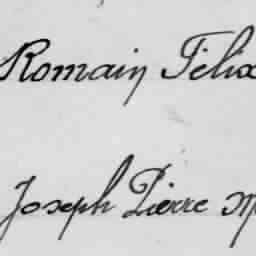 Romain Félix
Joseph Pierre